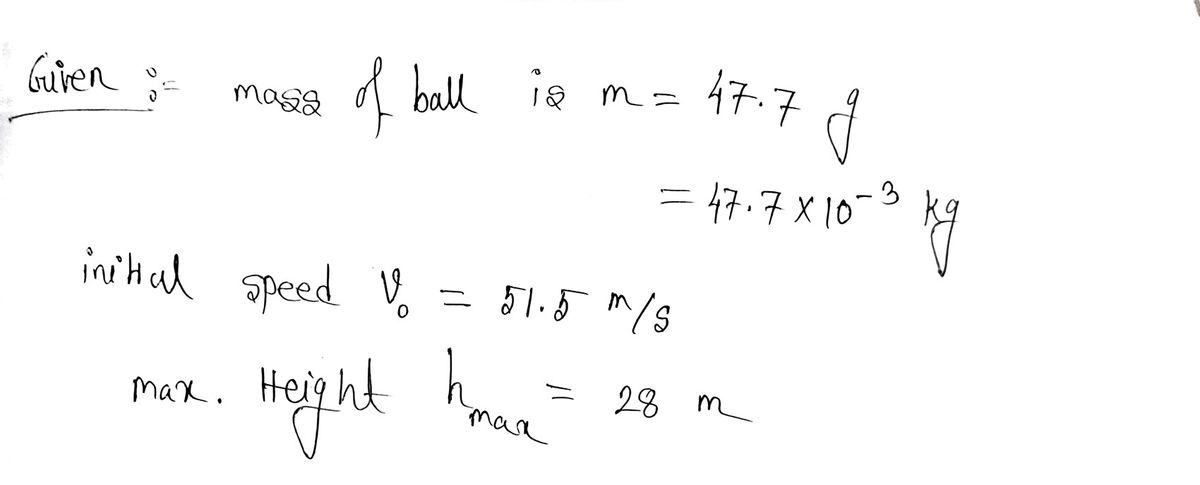 Given :- mass of ball is m = 47.7 g
= 47.7 × 10⁻³ kg
initial speed v₀ = 51.5 m/s
max. Height hmax = 28 m